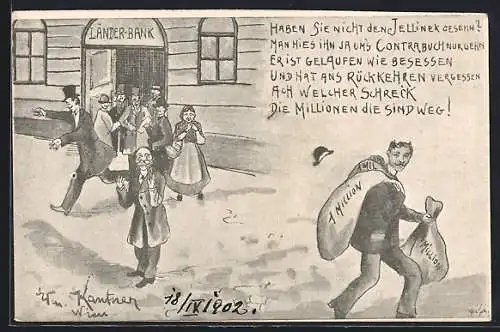 LÄNDER-BANK
HABEN SIE NICHT DEN JELLINEK GESEHN?
MAN HIES IHN JA UM'S CONTRABUCH NUR GEHN
ER IST GELAUFEN WIE BESESSEN
UND HAT ANS RÜCKKEHREN VERGESSEN
ACH WELCHER SCHRECK
DIE MILLIONEN DIE SIND WEG!
1 MILLION
MILLION
Kantner
Wien
18/IV 1902.